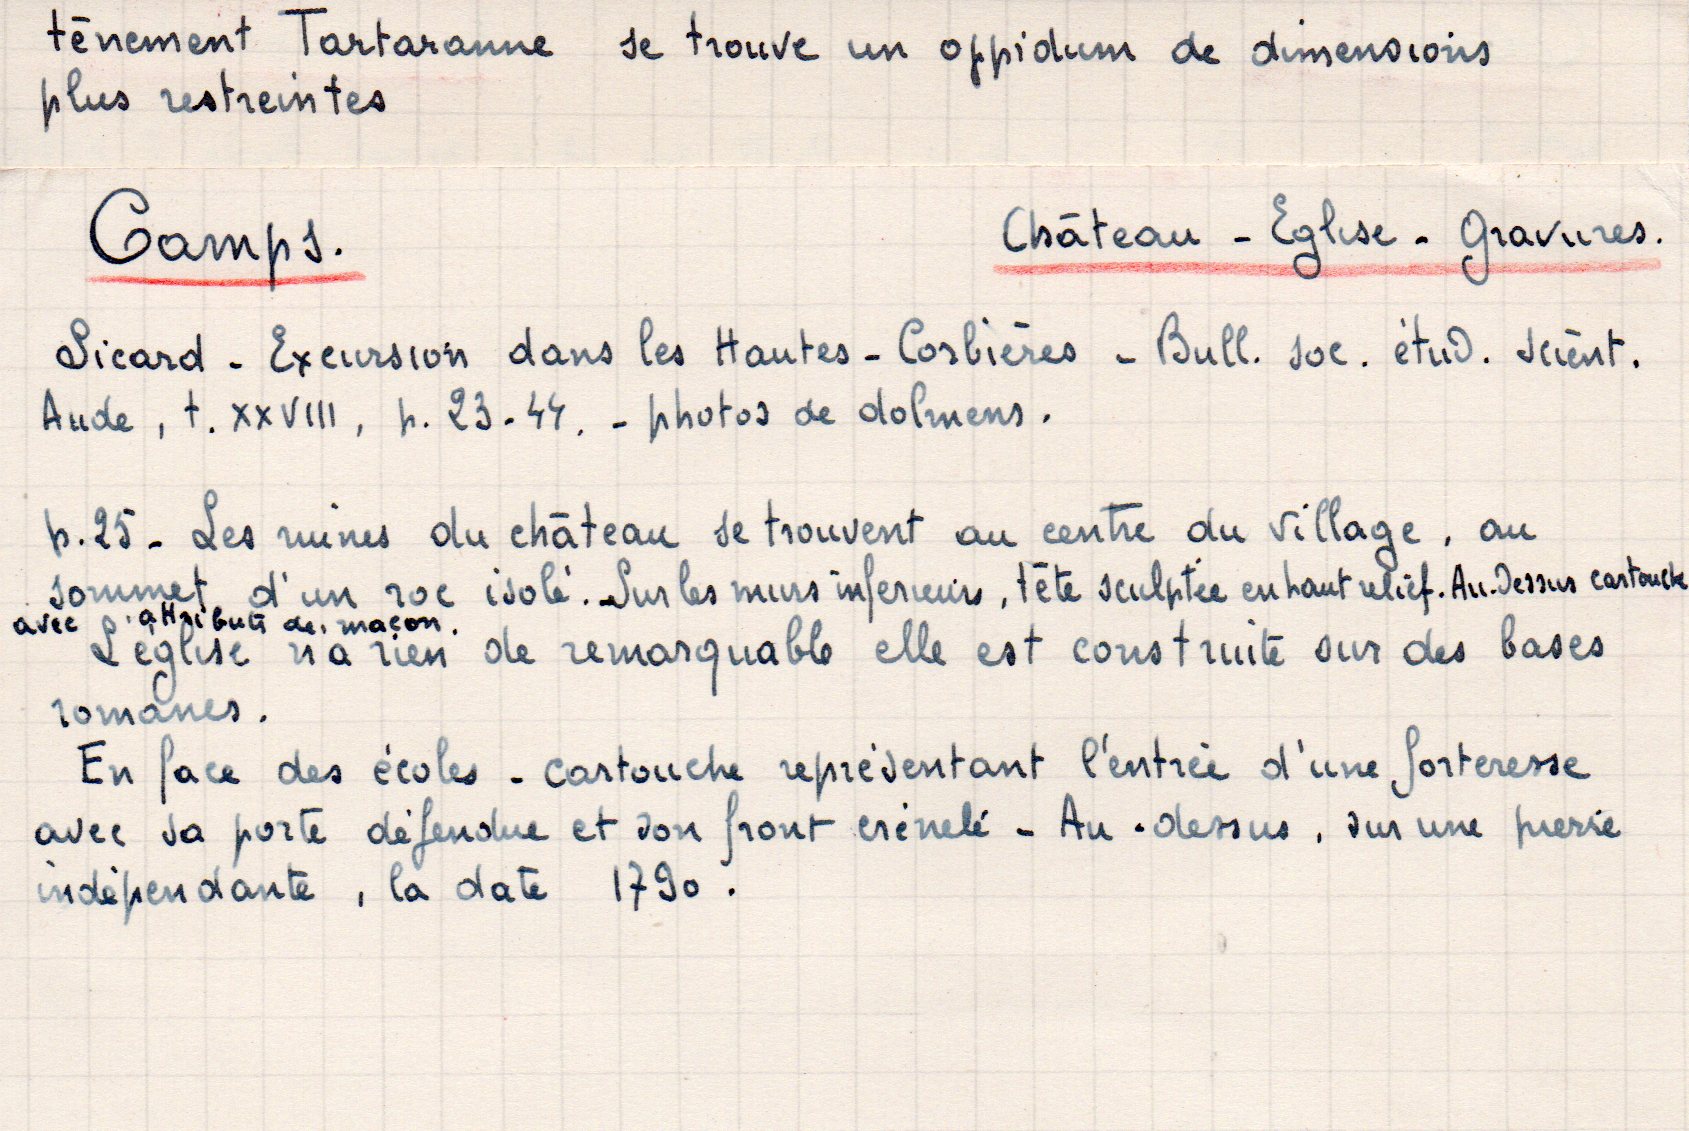 tènement Tartaranne se trouve un oppidum de dimensions
plus restreintes
Camps.
Château - Eglise - Gravures.
Sicard - Excursion dans les Hautes-Corbières - Bull. soc. étud. scient.
Aude, t. XXVIII, p. 23-44. - photos de dolmens.
p.25 - Les ruines du château se trouvent au centre du village, au
sommet d'un roc isolé. Sur les murs inférieurs, tête sculptée en haut relief. Au-dessus cartouche
avec attributs de maçon.
L'église n'a rien de remarquable elle est construite sur des bases
romanes.
En face des écoles - cartouche représentant l'entrée d'une forteresse
avec sa porte défendue et son front crénelé - Au-dessus, sur une pierre
indépendante, la date 1790.